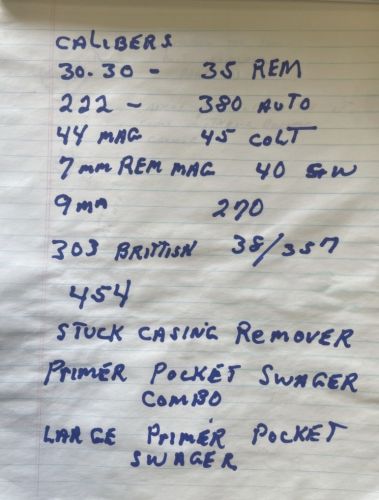 CALIBERS
30.30 - 35 REM
222 - 380 AUTO
44 MAG 45 COLT
7mm REM MAG 40 S&W
9mm 270
303 BRITTISH 38/357
454
STUCK CASING REMOVER
PRIMER POCKET SWAGER
COMBO
LARGE PRIMER POCKET
SWAGER